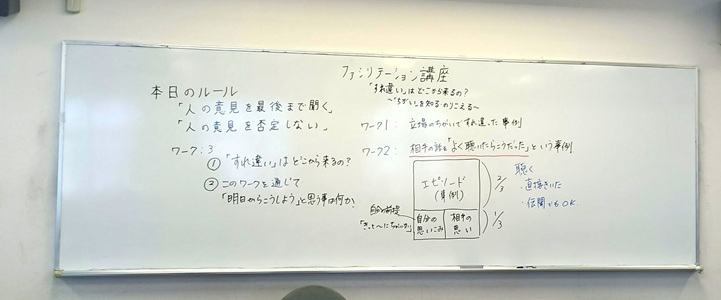 ファシリテーション講座
「すれ違い」はどこから来るの?
〜ちがいを知る のりこえる〜
本日のルール
「人の意見を最後まで聞く」
「人の意見を否定しない」
ワーク:3
① 「すれ違い」はどこから来るの?
② このワークを通じて
「明日からこうしよう」と思う事は何か
ワーク1: 立場のちがいですれ違った事例
ワーク2: 相手の話を「よく聴いたらこうだった」という事例
エピソード
(事例)
2/3
自分の
思いこみ
相手の
思い
1/3
自分の前提
聴く
・直接きいた
・伝聞でもOK